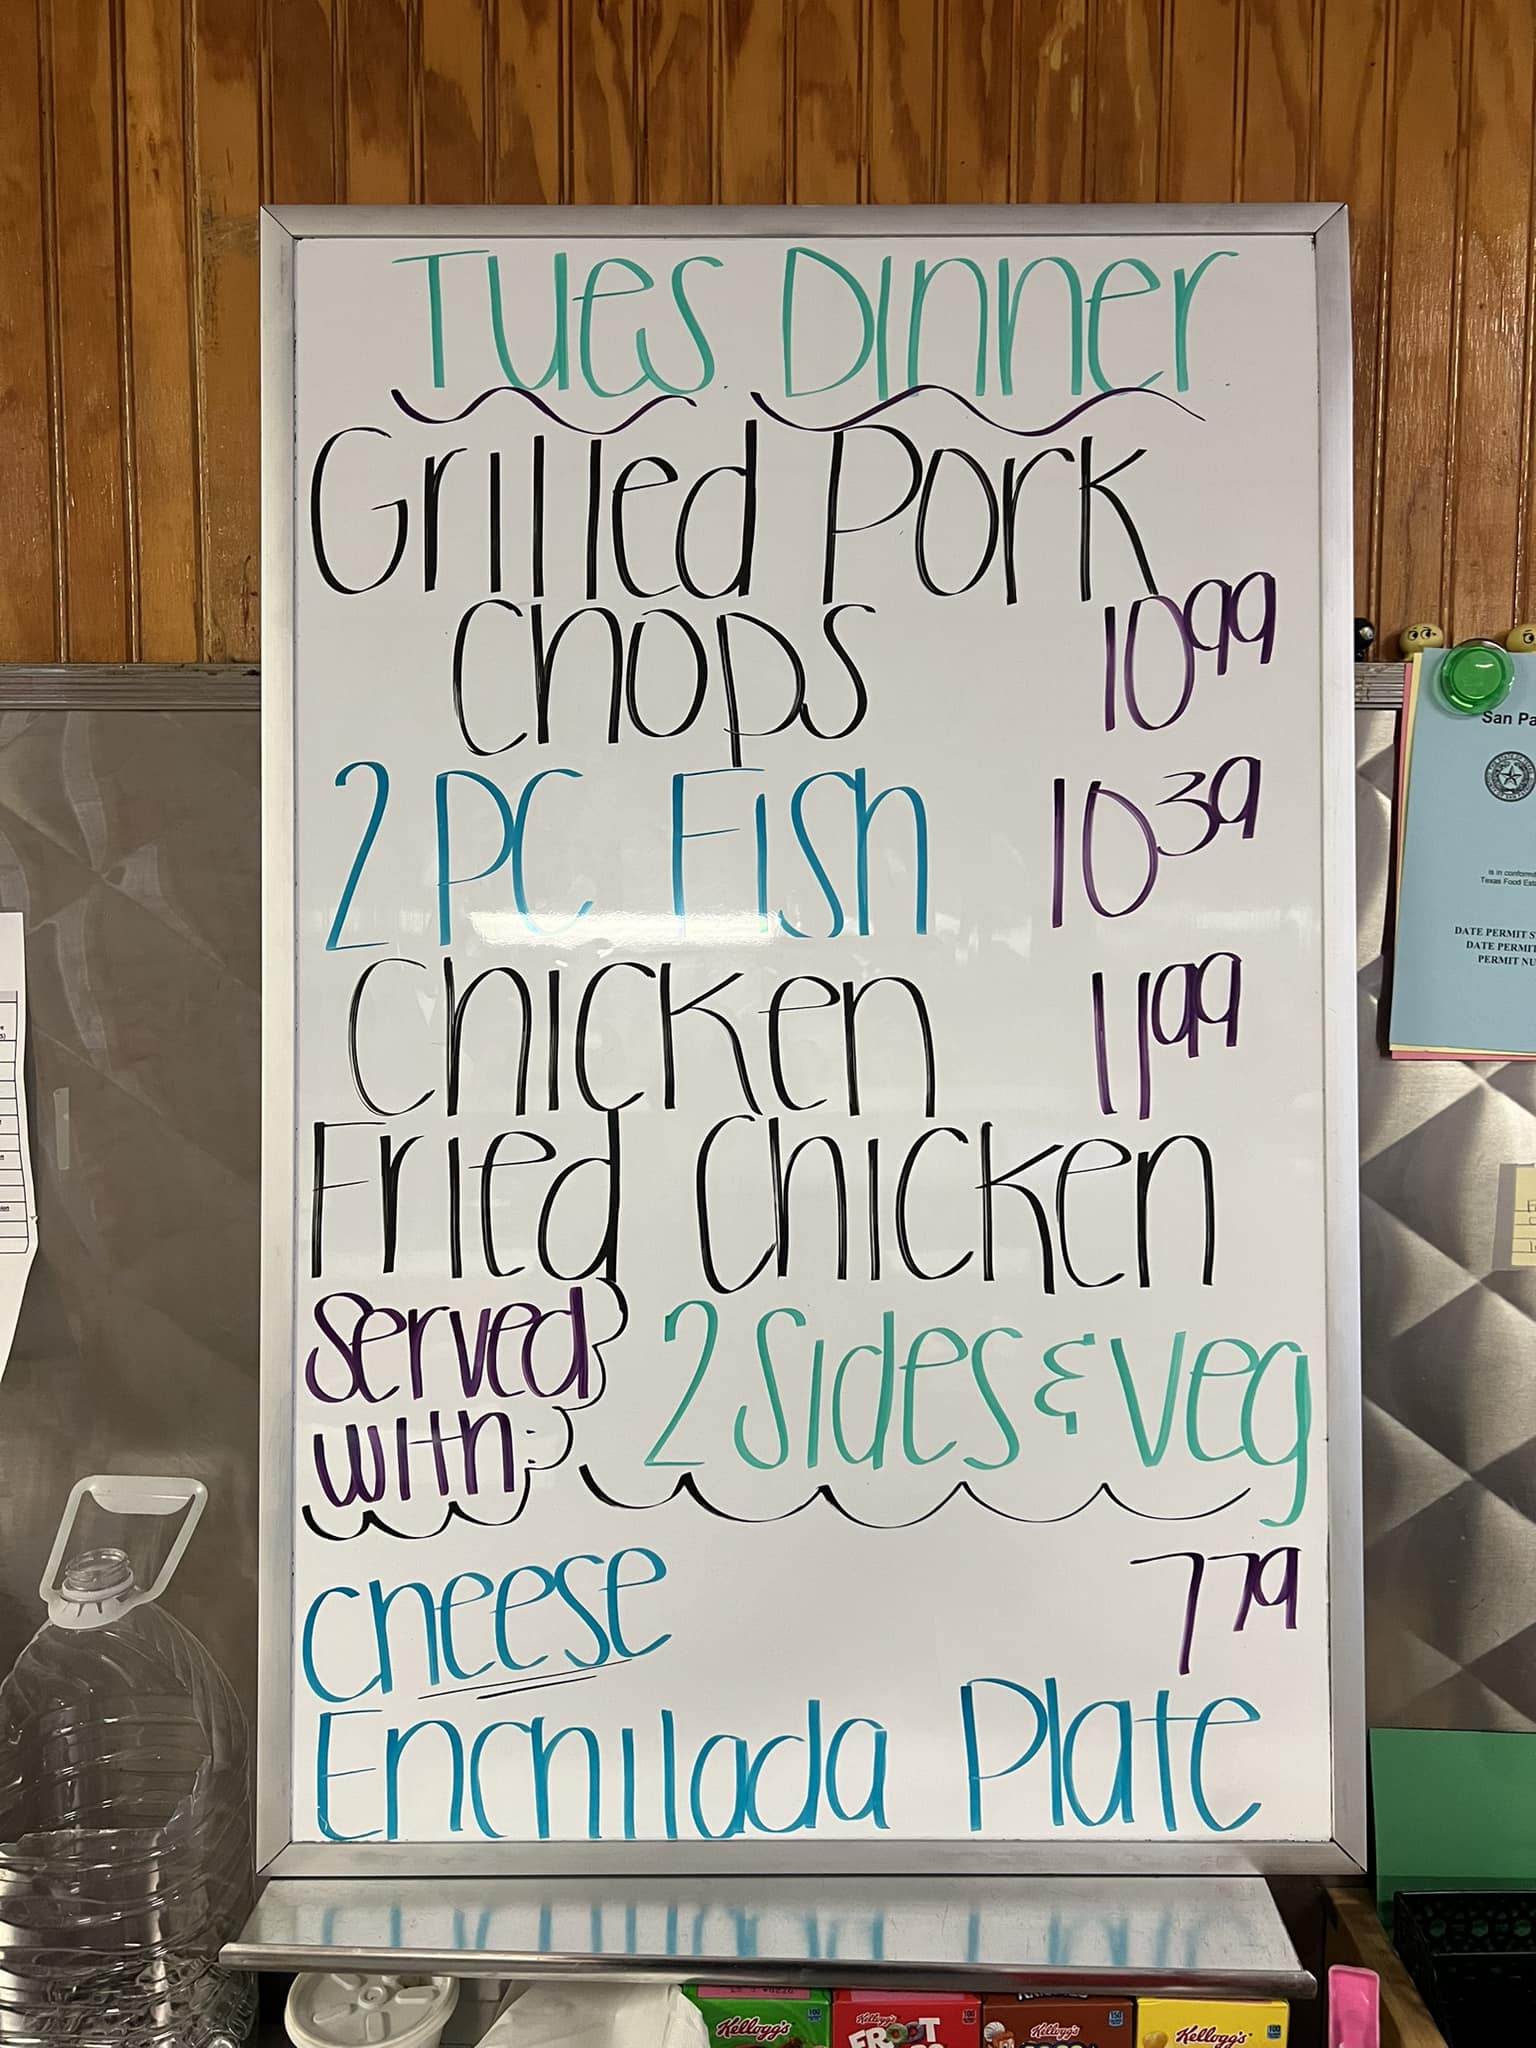 Tues Dinner
Grilled Pork
Chops 10 99
2 PC Fish 10 39
Chicken 11 99
Fried Chicken
Served
with: 2 Sides & Veg
Cheese 7 79
Enchilada Plate
San Pa
is in conform
Texas Food Est
DATE PERMIT
DATE PERMIT
PERMIT NU
Kellogg's
Kellogg's
FROOT
Kellogg's
Kellogg's